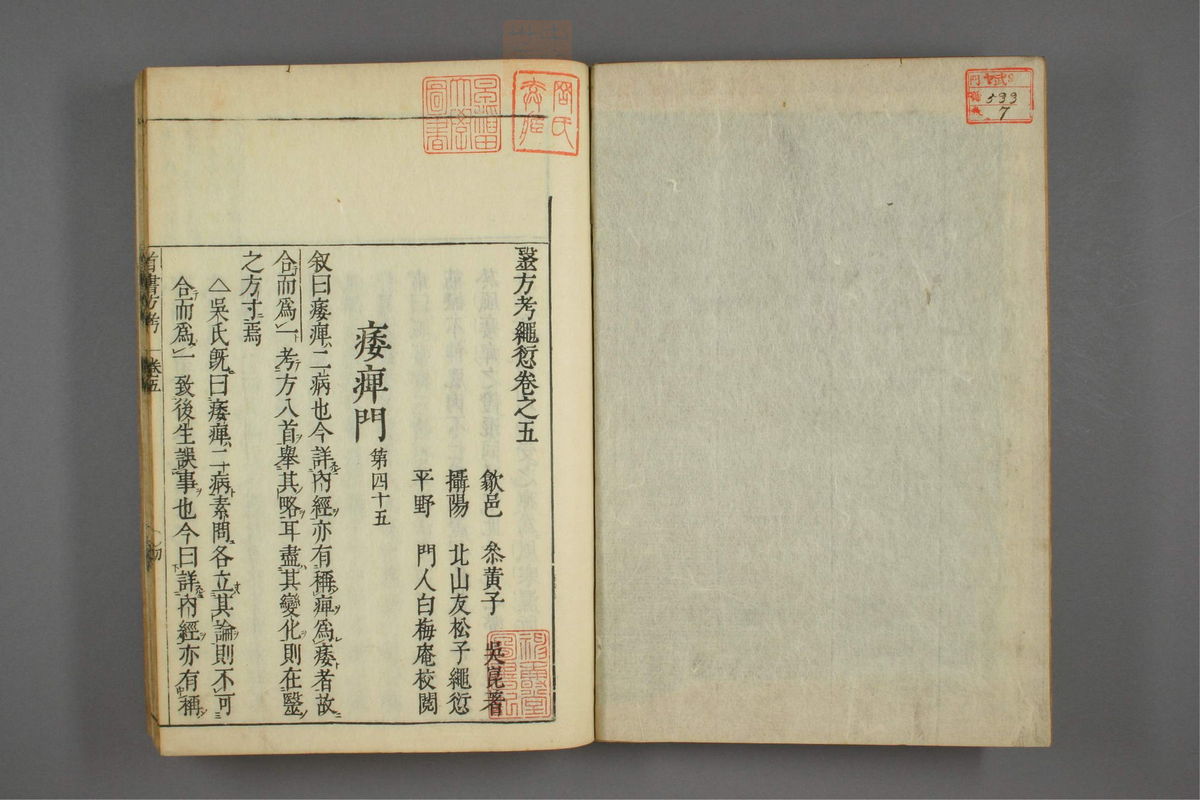 毉方考繩愆卷之五
歙邑 叅黃子 吳崑著
攝陽 北山友松子繩愆
平野 門人白梅庵校閱
痿痺門 第四十五
叙曰痿痺二病也今詳內經亦有稱痺爲痿者故
合而爲一考方八首舉其略耳盡其變化則在毉
之方寸焉
△吳氏既曰痿痺二病素問各立其論則不可
合而爲一致後生誤事也今曰詳內經亦有稱
首書方考 卷五
岡氏
早稲田大學圖書
533
7